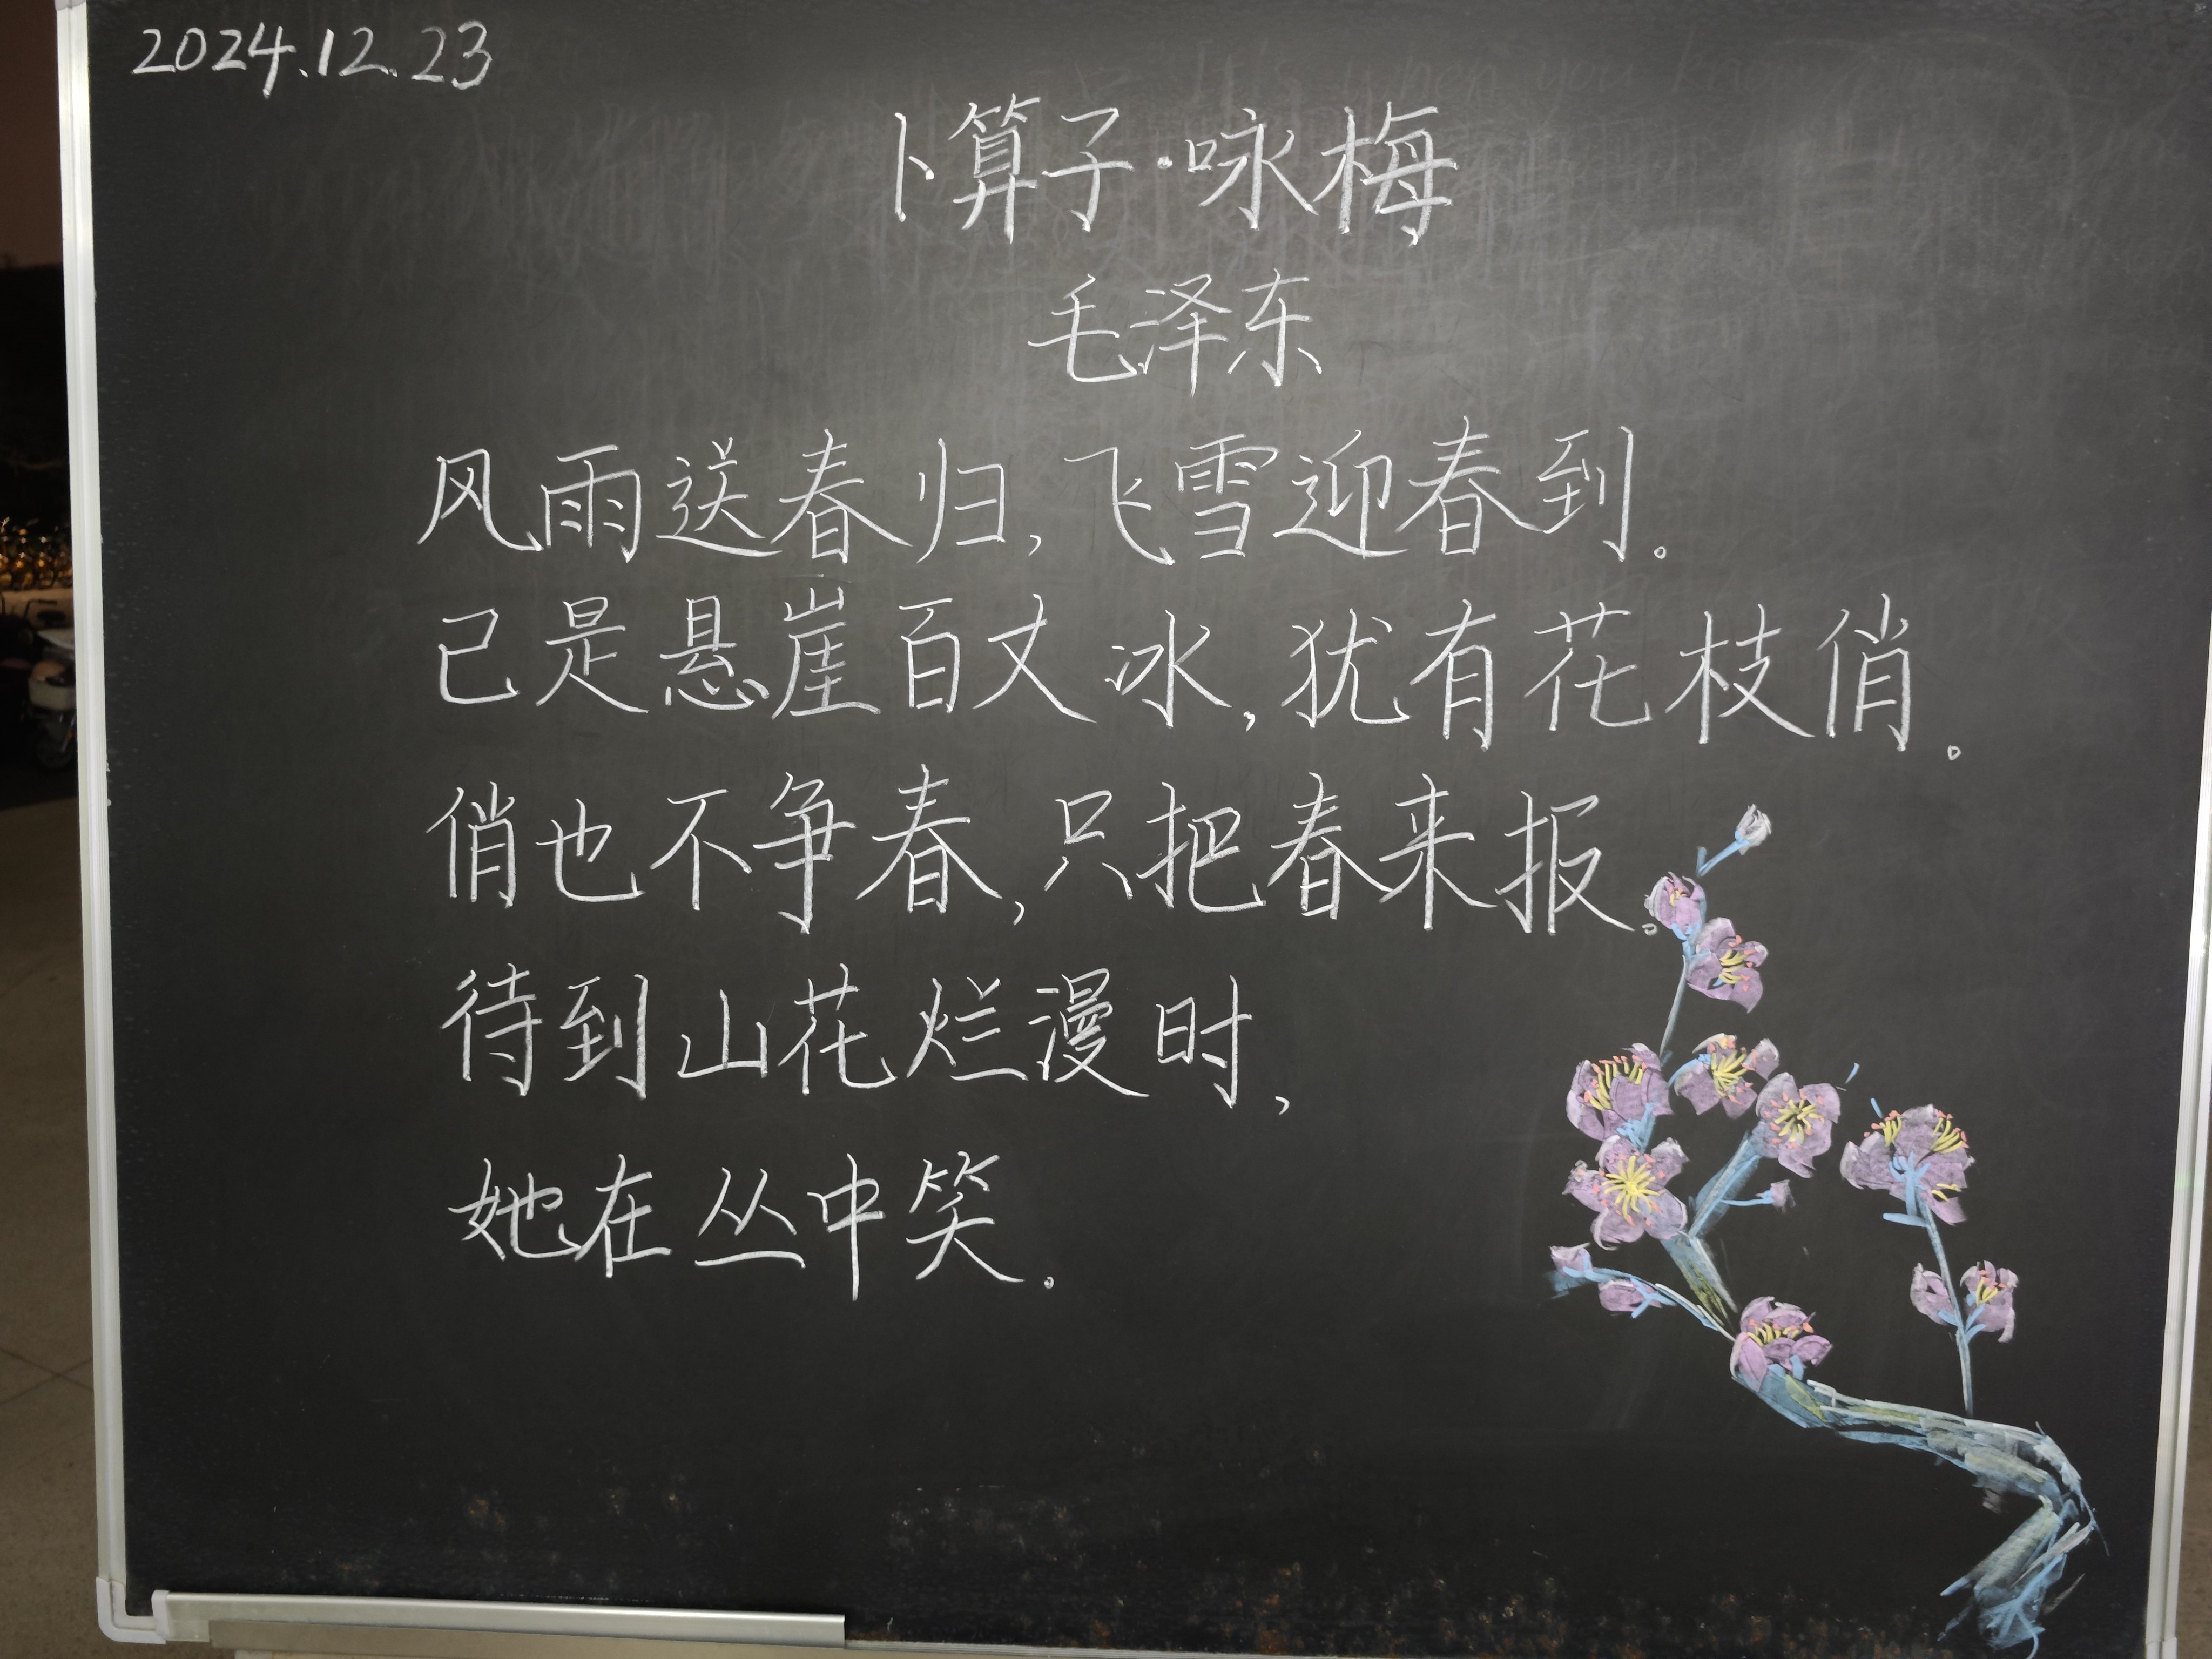 2024.12.23
卜算子·咏梅
毛泽东
风雨送春归,飞雪迎春到。
已是悬崖百丈冰,犹有花枝俏。
俏也不争春,只把春来报。
待到山花烂漫时,
她在丛中笑。